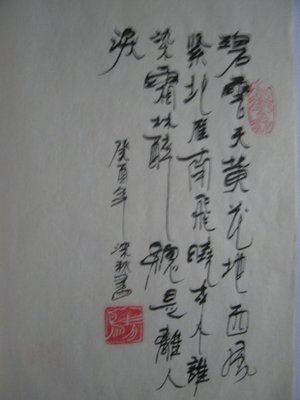 碧雲天黄花地西風
緊北雁南飛曉来誰
染霜林醉總是離人
淚
癸酉年深秋書